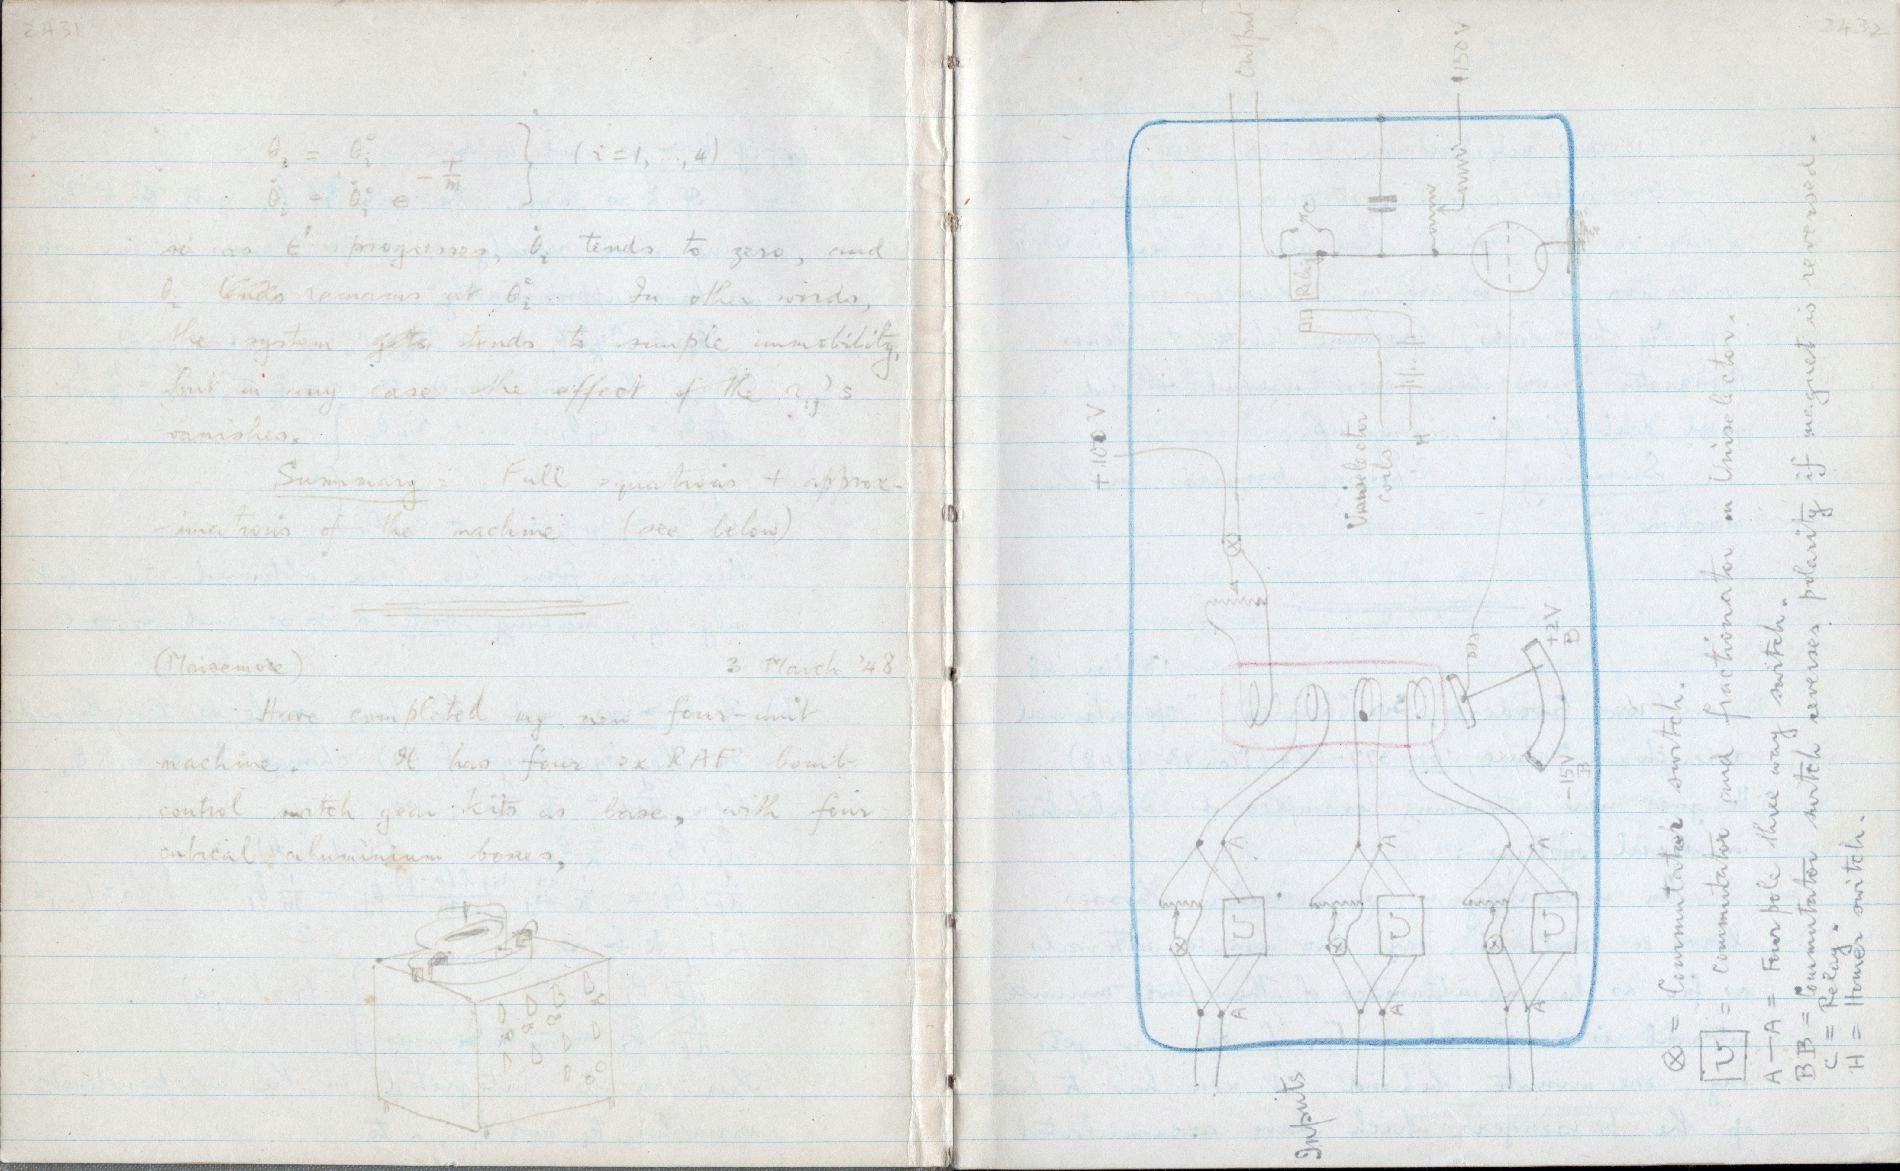 2431
θ_i = θ_i° } (i=1, .., 4)
θ̇_i = θ̇_i° e^{-T/m}
so as t progresses, θ̇_i tends to zero, and
θ_i remains at θ_i°. In other words,
the system tends to simple immobility,
but in any case the effect of the r_ij's
vanishes.
Summary: Full equations + approx-
-imations of the machine (see below)
(Maisemore) 3 March '48
Have completed my new four-unit
machine. It has four ex RAF bomb-
control switch gear kits as base, with four
cubical aluminium boxes,
2432
Output
+150 V
Relay
C
+100 V
Uniselector
coils
H
+2V
B
-15V
B
A
A
A
U
U
U
A
A
A
Inputs
⊗ = Commutator switch.
U = commutator and fractionator in Uniselector.
A—A = Four pole three way switch.
BB = Commutator switch reverses polarity if magnet is reversed.
C = Relay.
H = Homer switch.